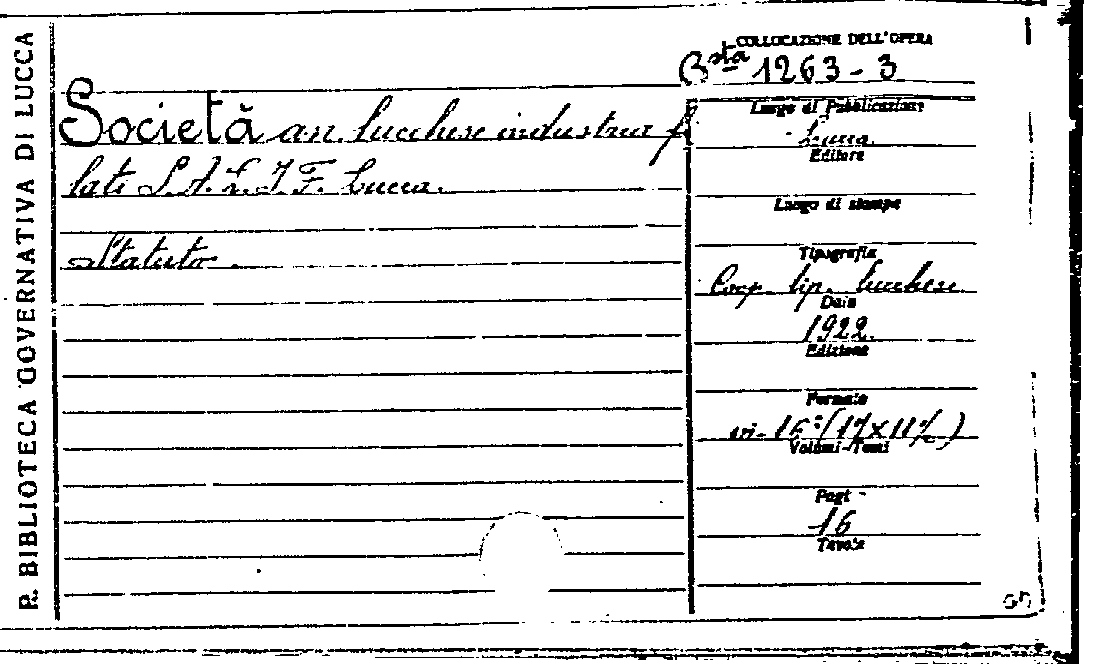 R. BIBLIOTECA GOVERNATIVA DI LUCCA
COLLOCAZIONE DELL'OPERA
Bsta 1263-3
Società an. lucchese industria fi
lati S.A.L.I.F. Lucca.
Statuto.
Luogo di Pubblicazione
Lucca
Editore
Luogo di stampa
Tipografia
Coop. tip. lucchese
Data
1922.
Edizione
Formato
in-16° (17x11½)
Volumi-Tomi
Pagi-
16
Tavole